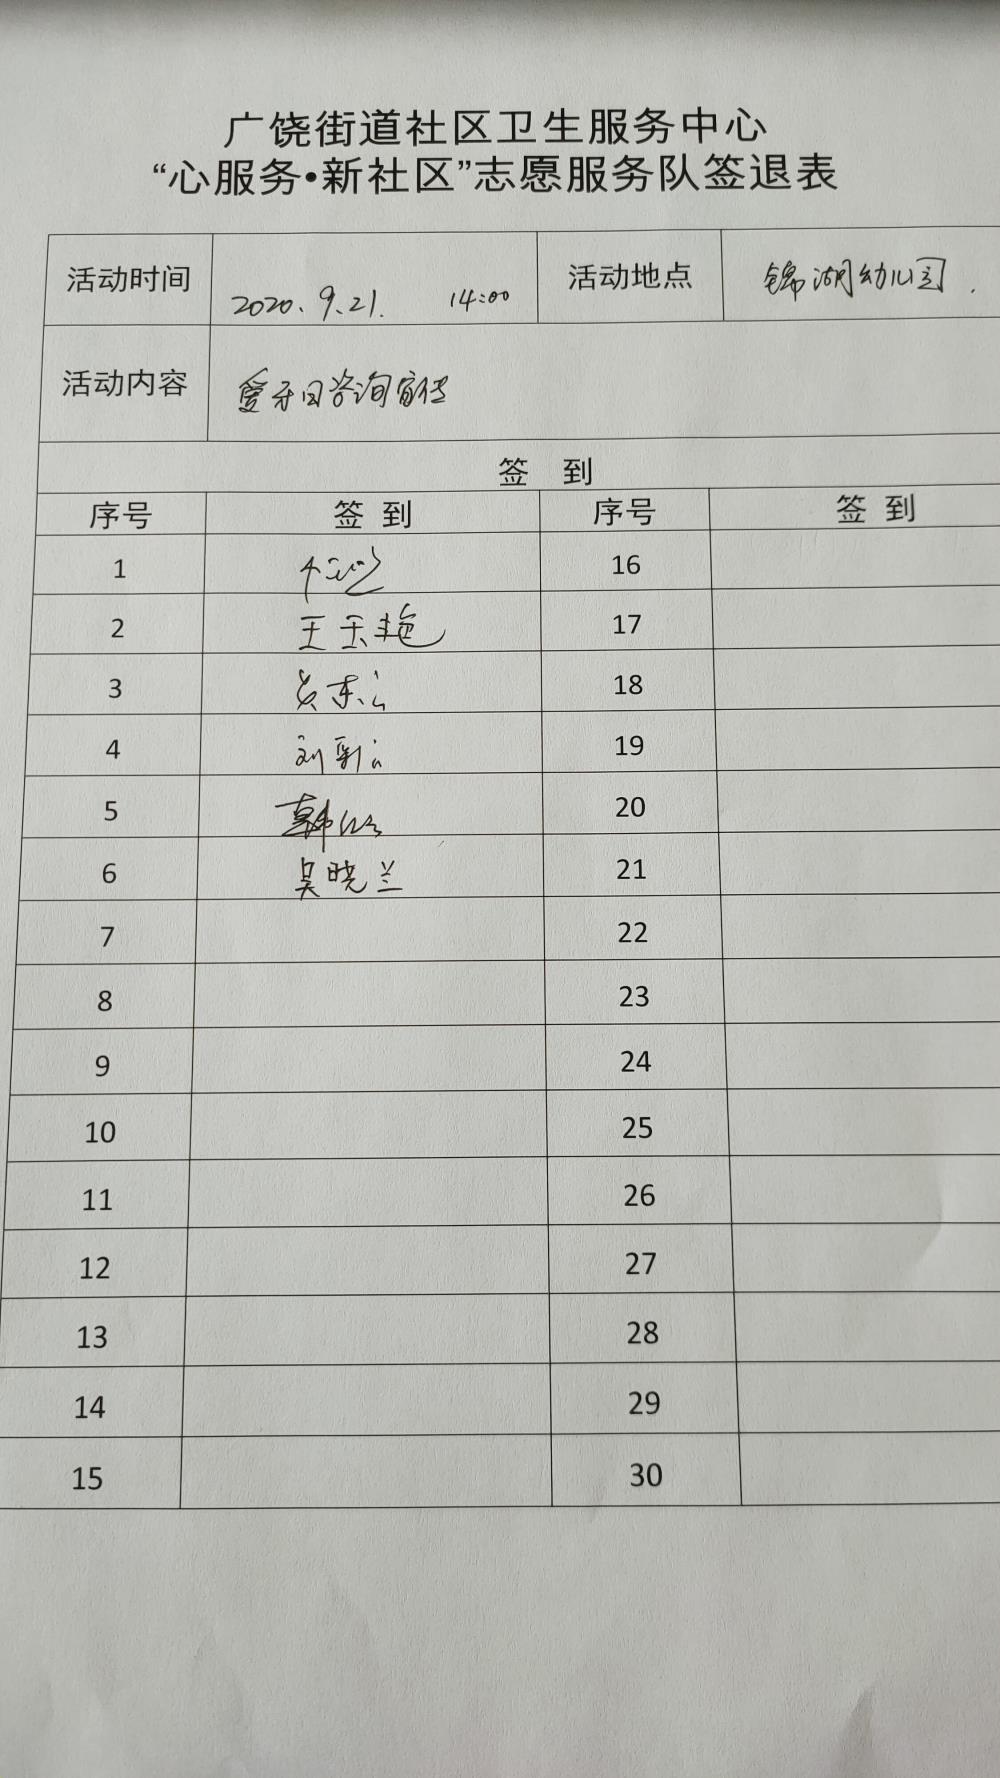 广饶街道社区卫生服务中心
“心服务•新社区”志愿服务队签退表
活动时间 2020.9.21. 14:00 活动地点 锦湖幼儿园.
活动内容 爱牙日咨询宣传
签 到
序号 签到 序号 签到
1 16
2 王玉艳 17
3 18
4 刘 19
5 韩 20
6 吴晓兰 21
7 22
8 23
9 24
10 25
11 26
12 27
13 28
14 29
15 30